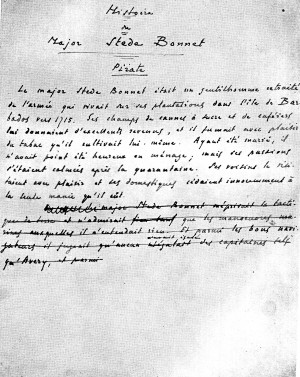 Histoire
du
Major Stede Bonnet
Pirate
Le major Stede Bonnet était un gentilhomme retraité
de l'armée qui vivait sur ses plantations dans l'île de Bar
bados vers 1715. Ses champs de cannes à sucre et de caféiers
lui donnaient d'excellents revenus, et il fumait avec plaisir
du tabac qu'il cultivait lui-même. Ayant été marié, il
n'avait point été heureux en ménage; mais ses passions
s'étaient calmées après la quarantaine. Ses voisins le
taient avec plaisir et les domestiques cédaient innocemment à
la seule manie qu'il eût
major Stede Bonnet méprisait la tacti
que de terre et n'admirait que les manoeuvres
auxquelles il n'entendait rien. Et parmi les bons navi
gateurs il jugeait qu'aucun n'avait égalé des capitaines tels
qu'Avery, et parmi